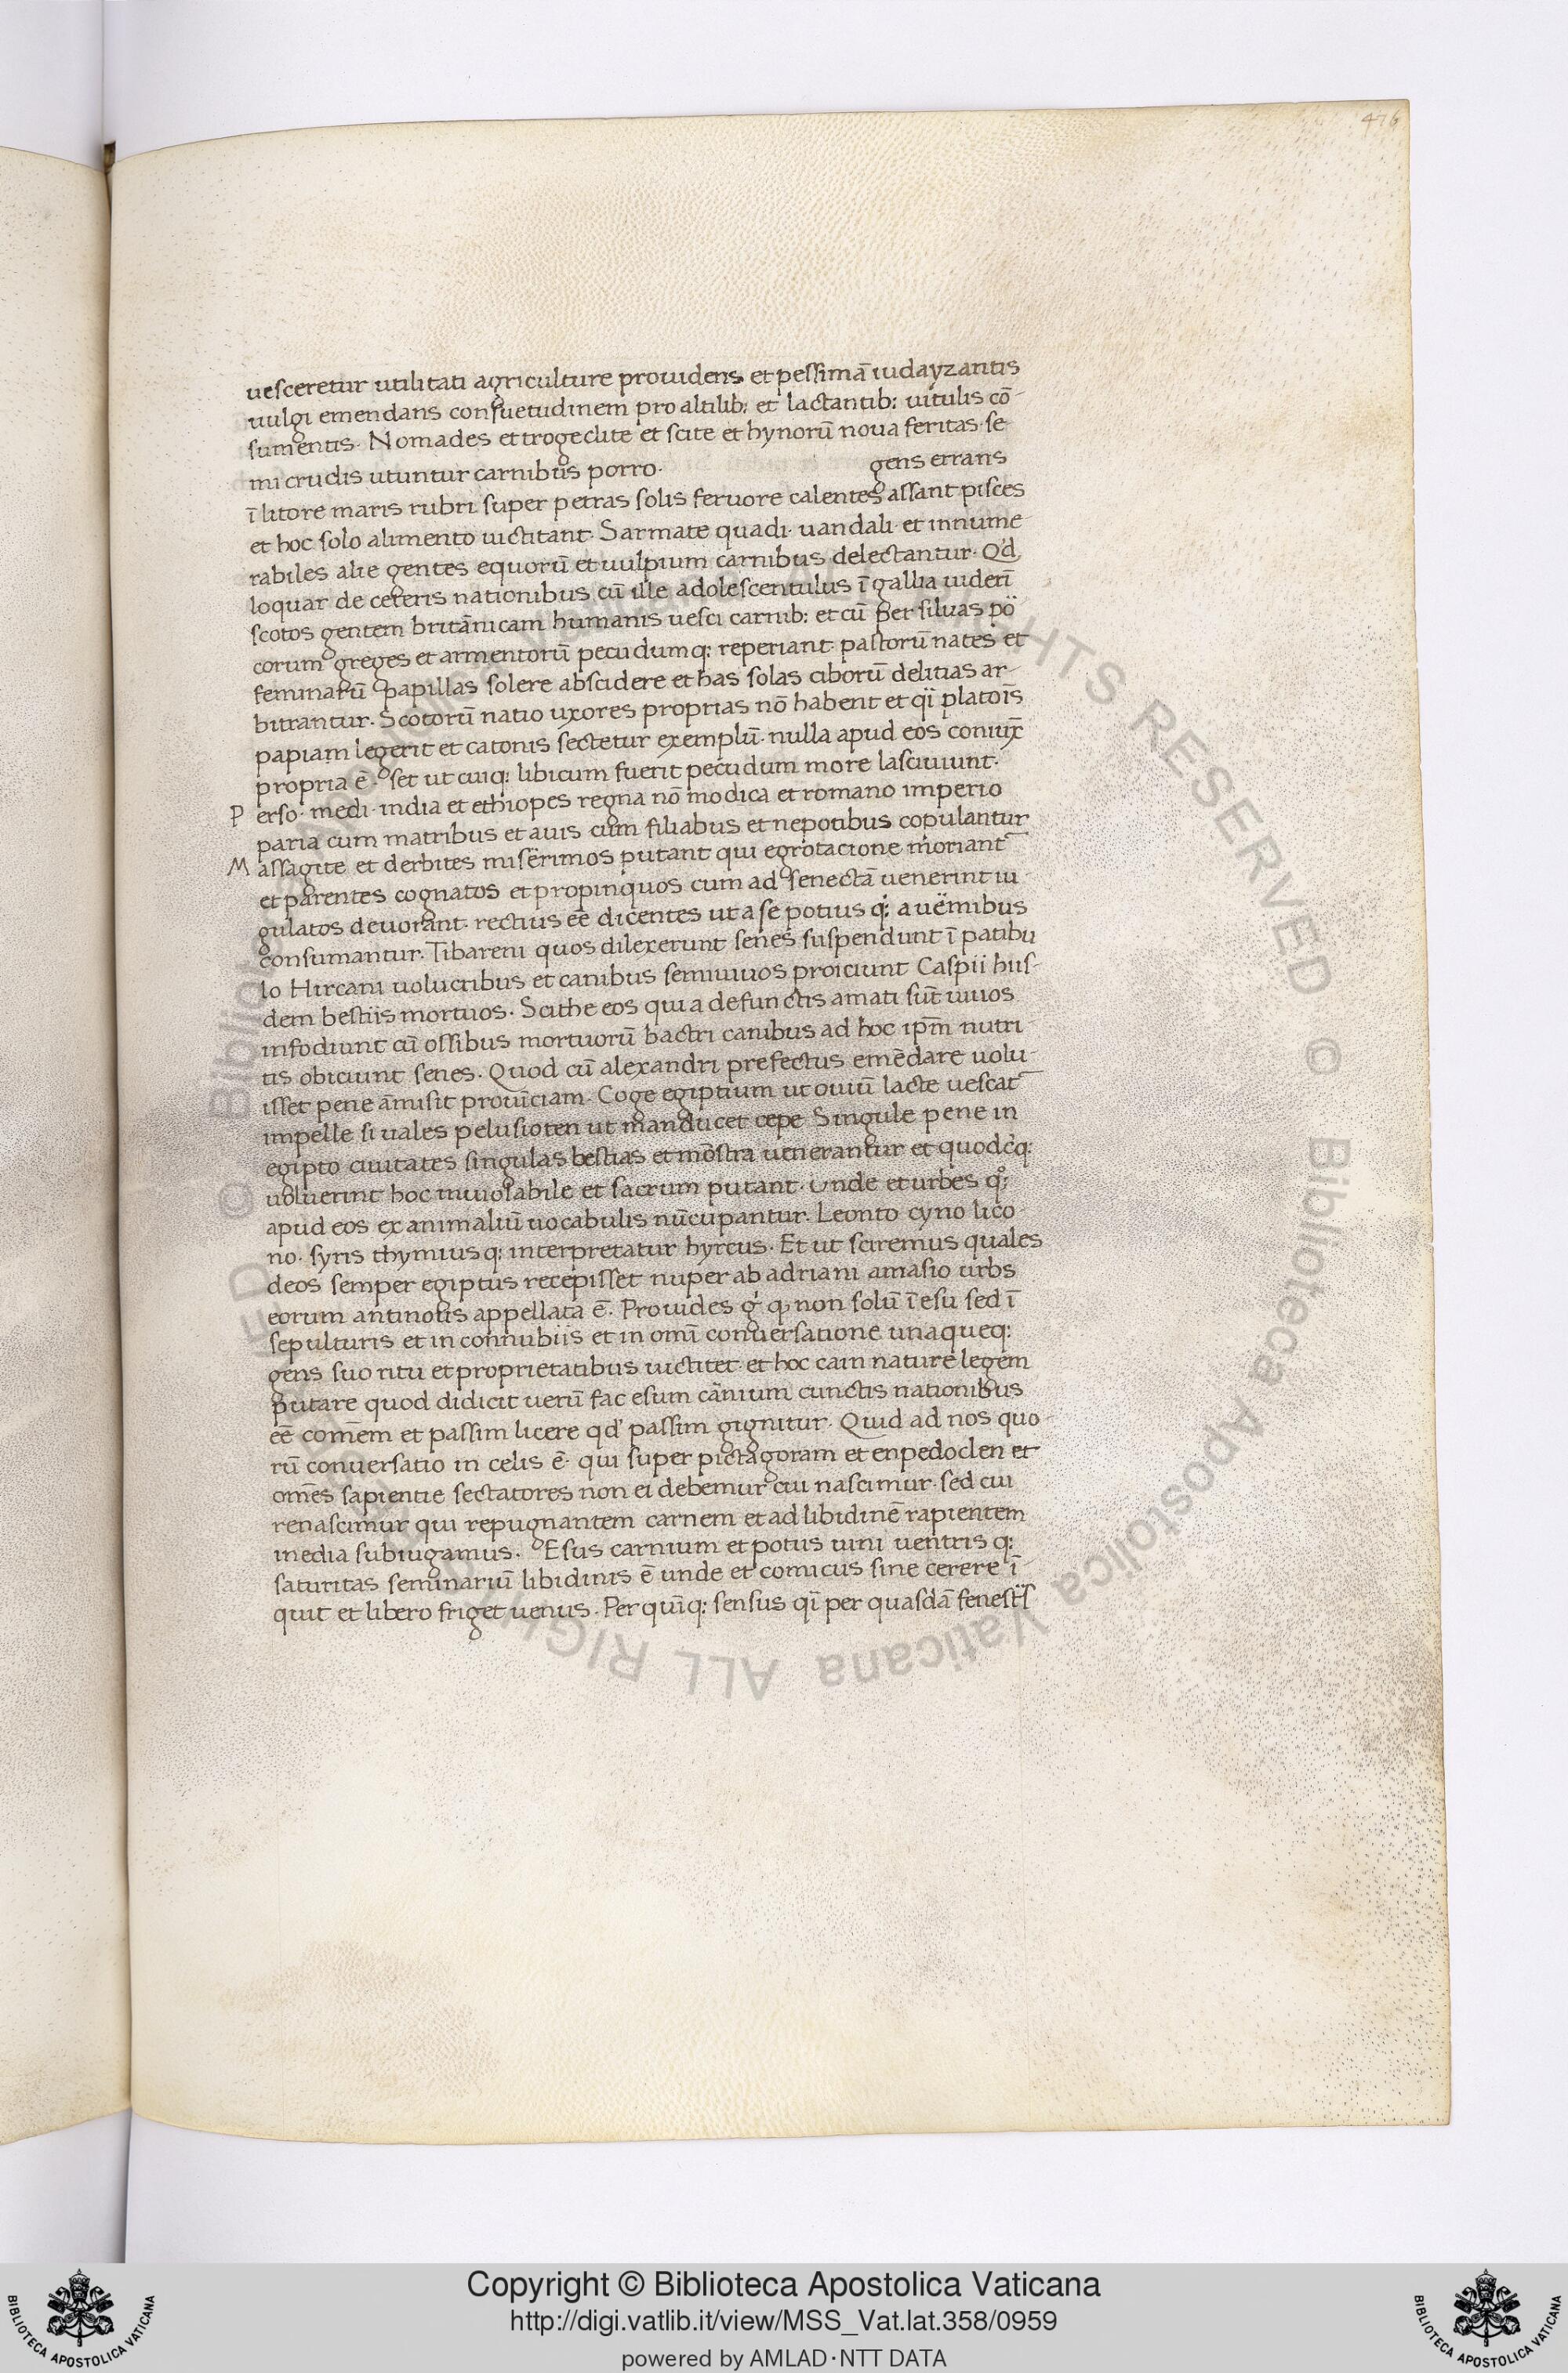 476
uesceretur utilitati agriculture prouidens et pessimā iudayzantis
uulgi emendans consuetudinem pro altilib; et lactantib; uitulis cō-
sumentis. Nomades et trogeclite et scite et hynorū noua feritas se-
mi crudis utuntur carnibus porro. gens etrans
ī litore maris rubri super petras solis feruore calentes assant pisces
et hoc solo alimento uictitant. Sarmate quadi. uandali. et innume-
rabiles alie gentes equorū et uulpium carnibus delectantur. Qd
loquar de ceteris nationibus cū ille adolescentulus ī gallia uideri
scotos gentem britānicam humanis uesci carnib; et cū per siluas po
corum greges et armentorū pecudumq; reperiant pastorū nates et
feminarū papillas solere abscidere et has solas ciborū delitias ar-
bitrantur. Scotorū natio uxores proprias nō habent et qi platoīs
papiam legerit et catonis sectetur exemplū. nulla apud eos coniux
propria ē. set ut cuiq; libicum fuerit pecudum more lasciuiunt.
Perso. medi. india et ethiopes regna nō modica et romano imperio
paria cum matribus et auis cum filiabus et nepotibus copulantur
Massagite et derbites miserimos putant qui egrotacione moriant
et parentes cognatos et propinquos cum ad senectā uenerint iu-
gulatos deuorant. rectius eē dicentes ut a se potius q; a uermibus
consumantur. Tibareni quos dilexerunt senes suspendunt ī patibu
lo Hircani uolucribus et canibus semiuiuos proiciunt Caspii hiis-
dem bestiis mortuos. Scithe eos qui a defunctis amati sūt uiuos
infodiunt cū ossibus mortuorū bactri canibus ad hoc ipm̄ nutri-
tis obiciunt senes. Quod cū alexandri prefectus emēdare uolu-
isset pene āmisit prouīciam. Coge egiptium ut ouiū lacte uescat
impelle si uales pelusioten ut manducet cepe Singule pene in
egipto ciuitates singulas bestias et mōstra uenerantur et quodcq;
uoluerint hoc inuiolabile et sacrum putant. Unde et urbes q;
apud eos ex animaliū uocabulis nūcupantur. Leonto cyno lico
no. syris thymiusq; interpretatur hyrcus. Et ut sciremus quales
deos semper egiptus recepisset nuper ab adriani amasio urbs
eorum antinotis appellata ē. Prouides g q non solū ī esu sed ī
sepulturis et in connubiis et in omī conuersatione unaqueq;
gens suo ritu et proprietatibus uictitet. et hoc cam nature legem
putare quod didicit uerū fac esum carnium cunctis nationibus
eē comēm et passim licere qd passim gignitur. Quid ad nos quo-
rū conuersatio in celis ē. qui super pictagoram et enpedoclen et
omēs sapientie sectatores non ei debemur cui nascimur. sed cui
renascimur qui repugnantem carnem et ad libidinē rapientem
inedia subiugamus. Esus carnium et potus uini uentris q;
saturitas seminariū libidinis ē unde et comicus sine cerere ī-
quit et libero friget uenus. Per quīq; sensus qī per quasdā fenestris
© Biblioteca Apostolica Vaticana ALL RIGHTS RESERVED
BIBLIOTECA APOSTOLICA VATICANA
Copyright © Biblioteca Apostolica Vaticana
http://digi.vatlib.it/view/MSS_Vat.lat.358/0959
powered by AMLAD·NTT DATA
BIBLIOTECA APOSTOLICA VATICANA